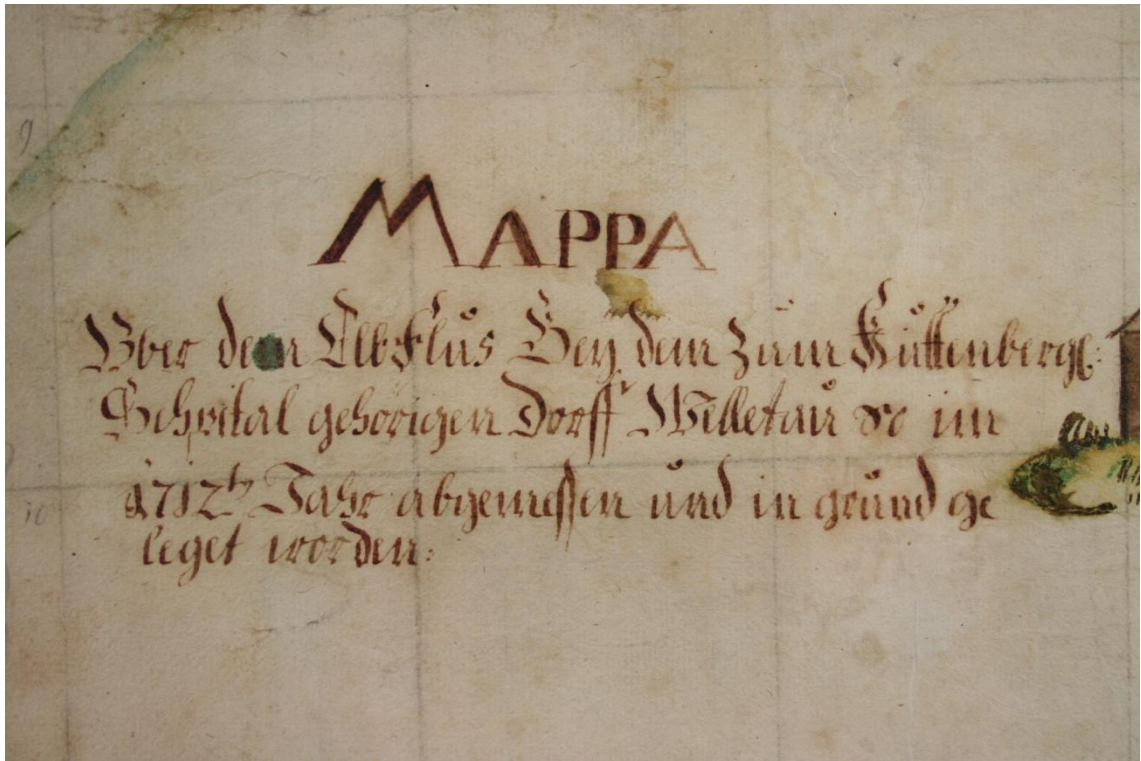 9
MAPPA
Vber den Elbflus Beÿ dem zum Kuttenbergl:
Schpital gehörigen Dorff Welletau so im
1712tn Jahr abgemessen und in grund ge
leget worden:
10